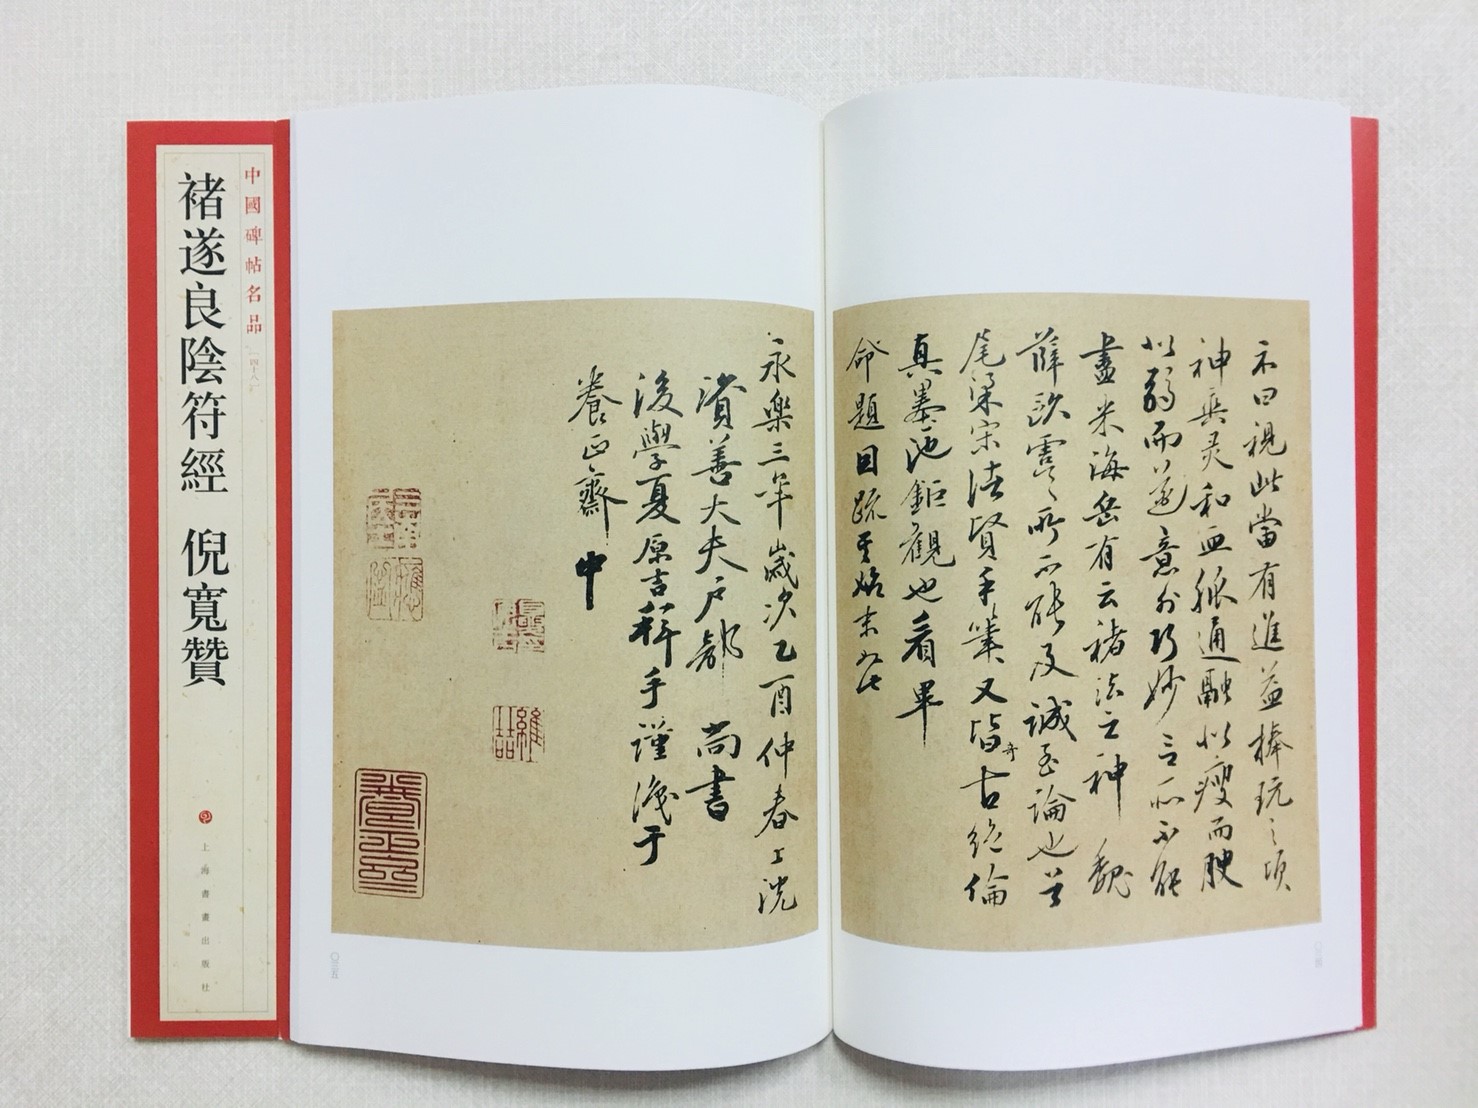 中國碑帖名品
[四十八]
褚遂良陰符經 倪寬贊
上海書畫出版社
示曰視此當有進益捧玩之頃
神爽灵和血脉通融以瘦而腴
以弱而遒意外巧妙言所不能
盡米海岳有云褚法之神 魏
薛欧虞之所不能及誠至論也
尾梁宋諸賢手筆又皆奇古絶倫
真墨池鉅觀也看畢
命題因疏其始末如此
永樂三年歲次乙酉仲春上浣
資善大夫戶部 尚書
後學夏原吉稽手謹識于
養正齋 中
〇三五